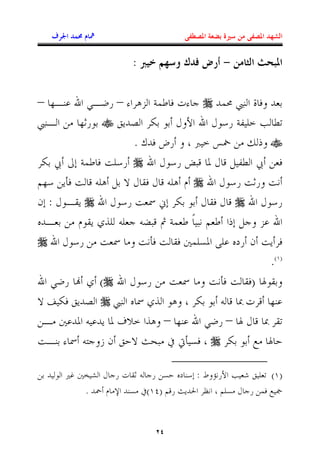 الشهد المصفى من سيرة بضعة المصطفى
همام محمد الجرف
المبحث الثامن – أرض فدك وسهم خيبر :
بعد وفاة النبي محمد ﷺ جاءت فاطمة الزهراء – رضي الله عنها –
تطالب خليفة رسول الله الأول أبو بكر الصديق بورثها من النبي
ﷺ وذلك من خمس خيبر ، و أرض فدك .
فعن أبي الطفيل قال لما قبض رسول الله ﷺ أرسلت فاطمة إلى أبي بكر
أنت ورثت رسول الله ﷺ أم أهله قال فقال لا بل أهله قالت فأين سهم
رسول الله ﷺ قال فقال أبو بكر إني سمعت رسول الله ﷺ يقول : إن
الله عز وجل إذا أطعم نبياً طعمة ثم قبضه جعله للذي يقوم من بعده
فرأيت أن أرده على المسلمين فقالت فأنت وما سمعت من رسول الله ﷺ
(١).
وبقولها (فقالت فأنت وما سمعت من رسول الله ﷺ) أي أنها رضي الله
عنها أقرت بما قاله أبو بكر ، وهو الذي سماه النبي ﷺ الصديق فكيف لا
تقر بما قال لها – رضي الله عنها – وهذا خلاف لما يدعيه المدعين من
حالها مع أبو بكر ، فسيأتي في مبحث لاحق أن زوجته أسماء بنت
(١) تعليق شعيب الأرنؤوط : إسناده حسن رجاله ثقات رجال الشيخين غير الوليد بن
جميع فمن رجال مسلم ، انظر الحديث رقم (١٤)في مسند الإمام أحمد .
٢٤